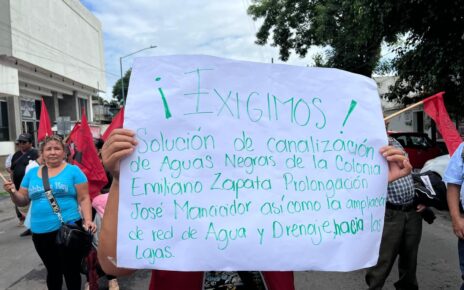 ¡EXIGIMOS!
Solución de canalización
de Aguas Negras de la Colonia
Emiliano Zapata Prolongación
José Mancicidor así como la ampliación
de red de Agua y Drenaje hacia las
Lajas.